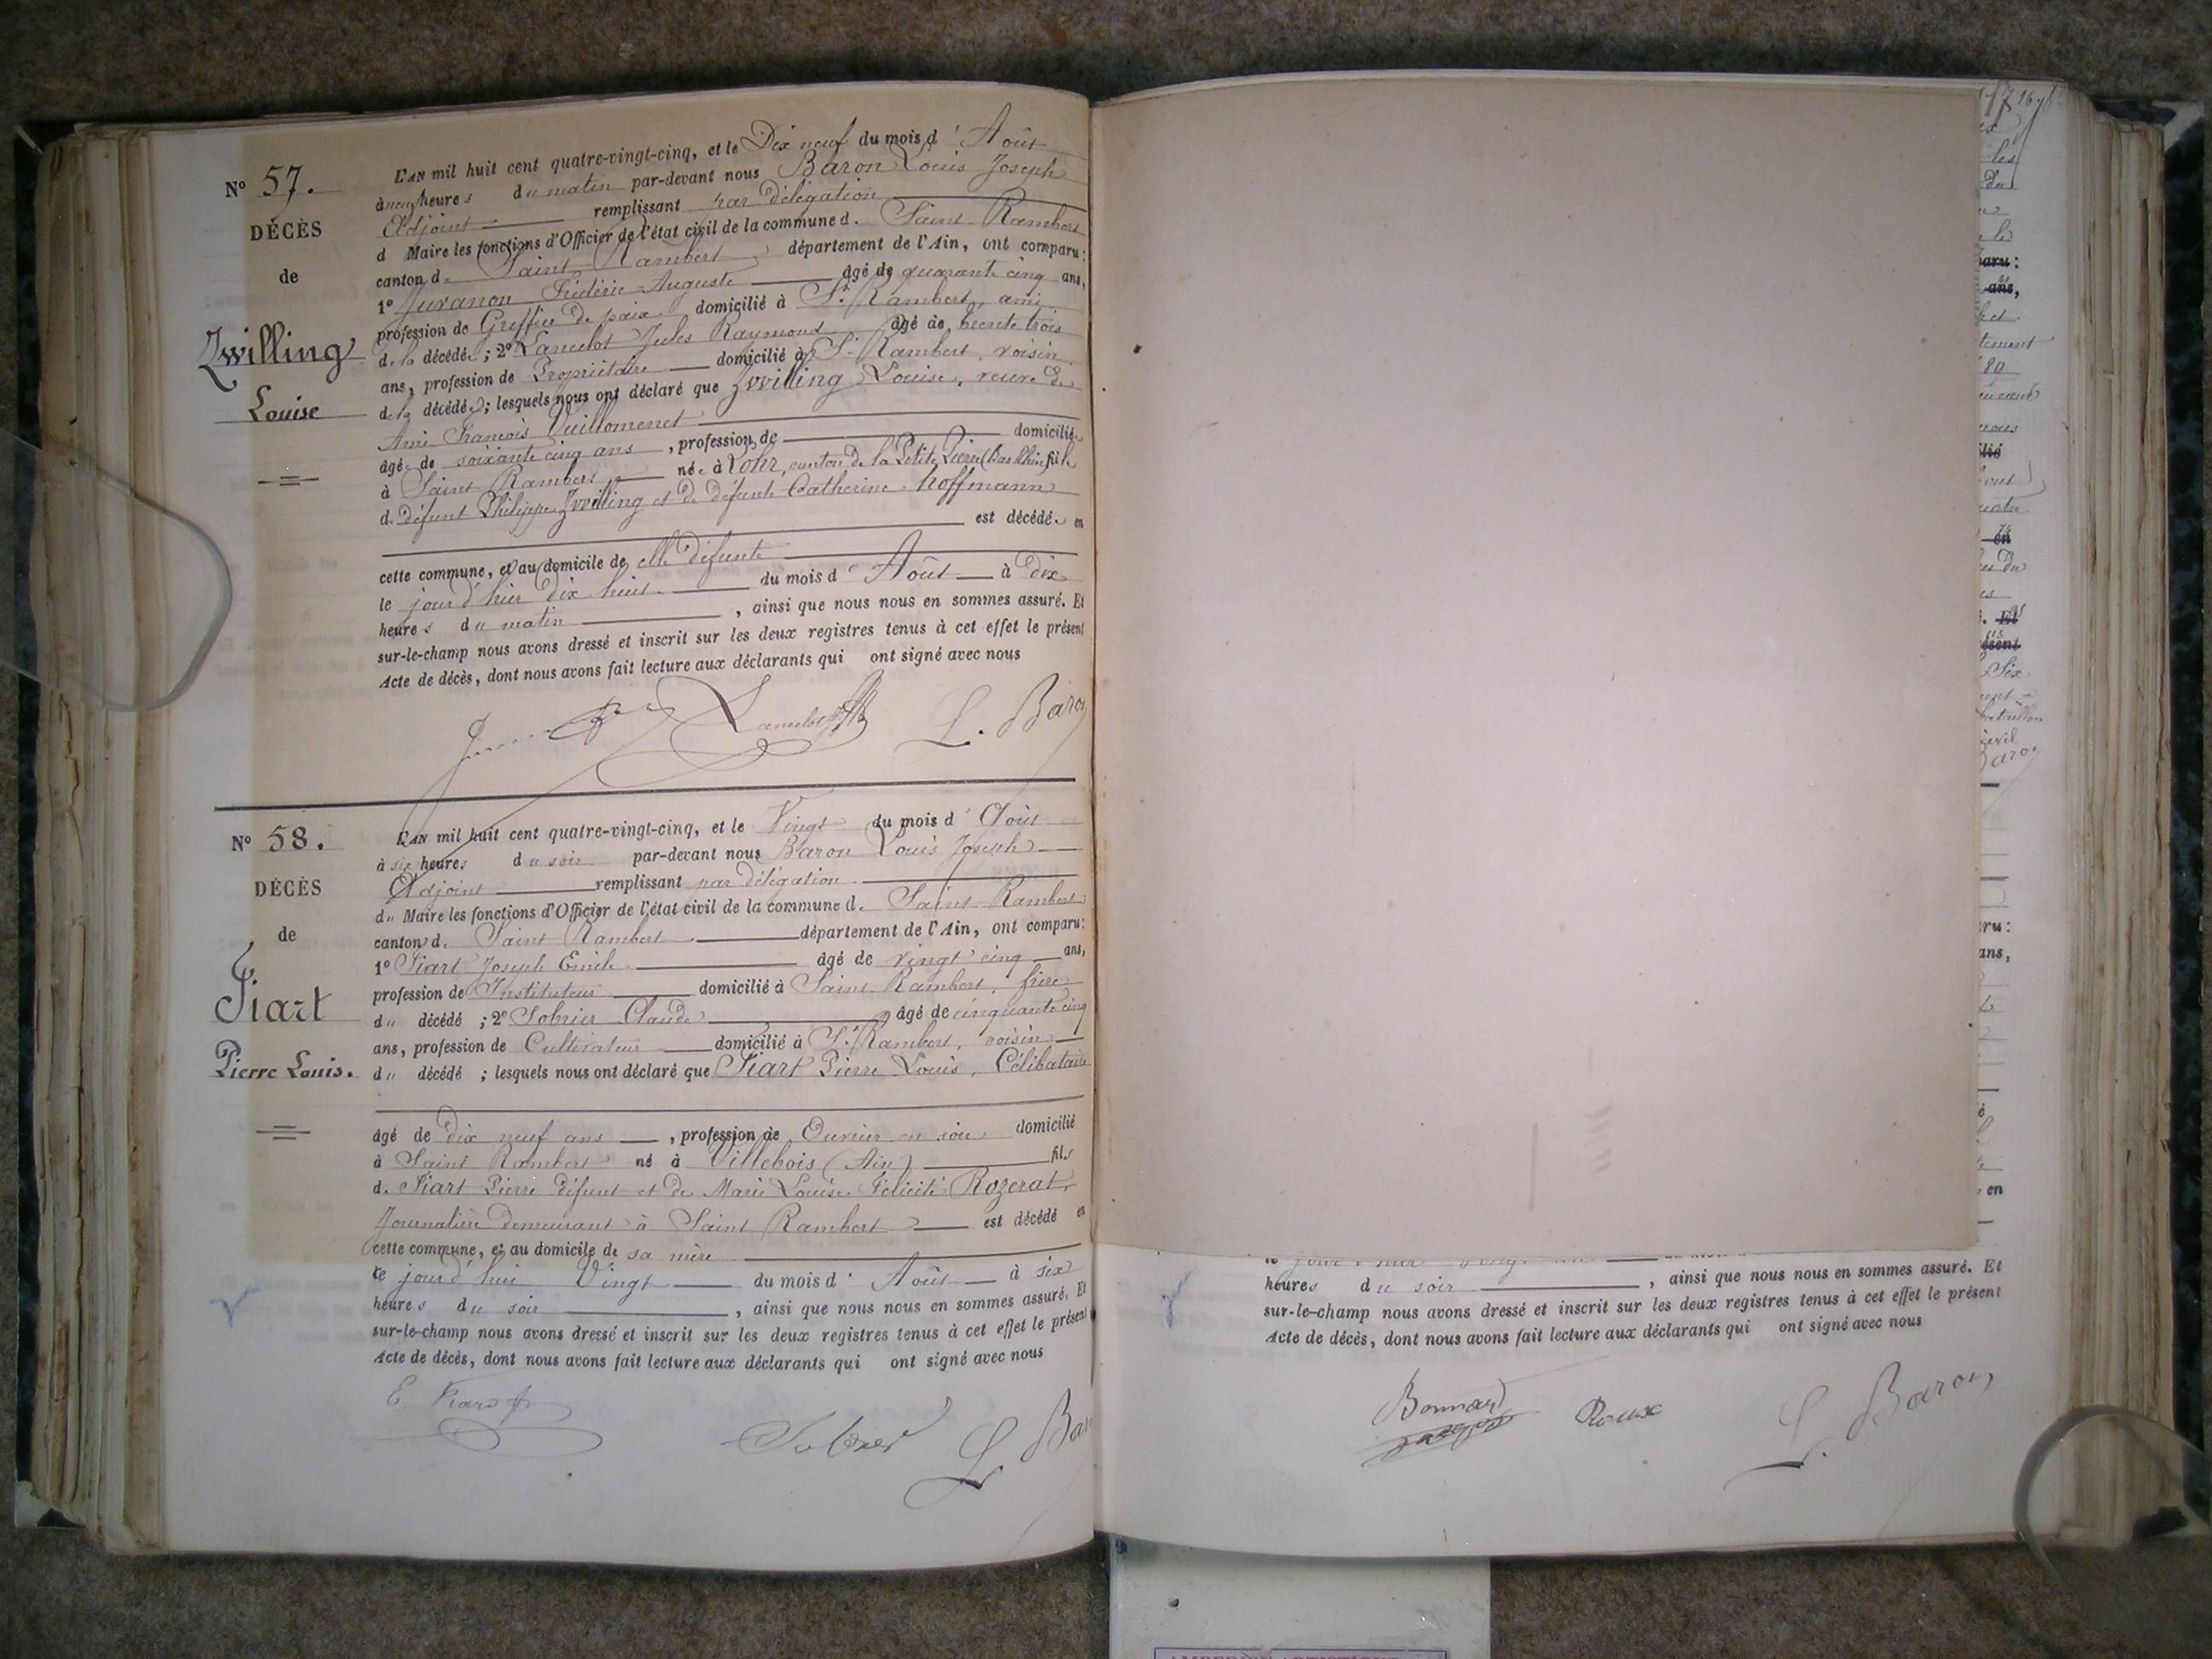 N° 57.
DÉCÈS
de
Zwilling
Louise
L'AN mil huit cent quatre-vingt-cinq, et le Dix neuf du mois d'Août
à neuf heures du matin par-devant nous Baron Louis Joseph
Adjoint remplissant par délégation
d Maire les fonctions d'Officier de l'état civil de la commune de Saint Rambert
canton de Saint Rambert département de l'Ain, ont comparu :
1° Juvanon Frédéric Auguste âgé de quarante cinq ans,
profession de Greffier de paix domicilié à St Rambert, ami
de la décédée ; 2° Lancelot Jules Raymond âgé de trente trois
ans, profession de Propriétaire domicilié à St Rambert, voisin
de la décédée ; lesquels nous ont déclaré que Zwilling Louise, veuve de
Ami François Vuillomenet
âgée de soixante cinq ans, profession de domiciliée
à Saint Rambert née à Lohr, canton de la Petite Pierre (Bas Rhin) fille
de défunt Philippe Zwilling et de défunte Catherine Hoffmann
est décédée en
cette commune, et au domicile de elle défunte
le jour d'hier dix huit du mois d'Août à dix
heures du matin, ainsi que nous nous en sommes assuré. Et
sur-le-champ nous avons dressé et inscrit sur les deux registres tenus à cet effet le présent
Acte de décès, dont nous avons fait lecture aux déclarants qui ont signé avec nous
Lancelot L. Baron
N° 58.
DÉCÈS
de
Fiart
Pierre Louis.
L'AN mil huit cent quatre-vingt-cinq, et le Vingt du mois d'Août
à six heures du soir par-devant nous Baron Louis Joseph
Adjoint remplissant par délégation
du Maire les fonctions d'Officier de l'état civil de la commune de Saint Rambert
canton de Saint Rambert département de l'Ain, ont comparu :
1° Fiart Joseph Emile âgé de vingt cinq ans,
profession de Instituteur domicilié à Saint Rambert, frère
du décédé ; 2° Sobrier Claude âgé de cinquante cinq
ans, profession de Cultivateur domicilié à St Rambert, voisin
du décédé ; lesquels nous ont déclaré que Fiart Pierre Louis, Célibataire
âgé de dix neuf ans, profession de Ouvrier en soie domicilié
à Saint Rambert né à Villebois (Ain) fils
de Fiart Pierre défunt et de Marie Louise Félicité Rozerat,
Journalière demeurant à Saint Rambert est décédé en
cette commune, et au domicile de sa mère
ce jour d'hui Vingt du mois d'Août à six
heures du soir, ainsi que nous nous en sommes assuré. Et
sur-le-champ nous avons dressé et inscrit sur les deux registres tenus à cet effet le présent
Acte de décès, dont nous avons fait lecture aux déclarants qui ont signé avec nous
E Fiart Sobrier L. Bar
heures du soir, ainsi que nous nous en sommes assuré. Et
sur-le-champ nous avons dressé et inscrit sur les deux registres tenus à cet effet le présent
Acte de décès, dont nous avons fait lecture aux déclarants qui ont signé avec nous
Bonnard Roux L. Baron